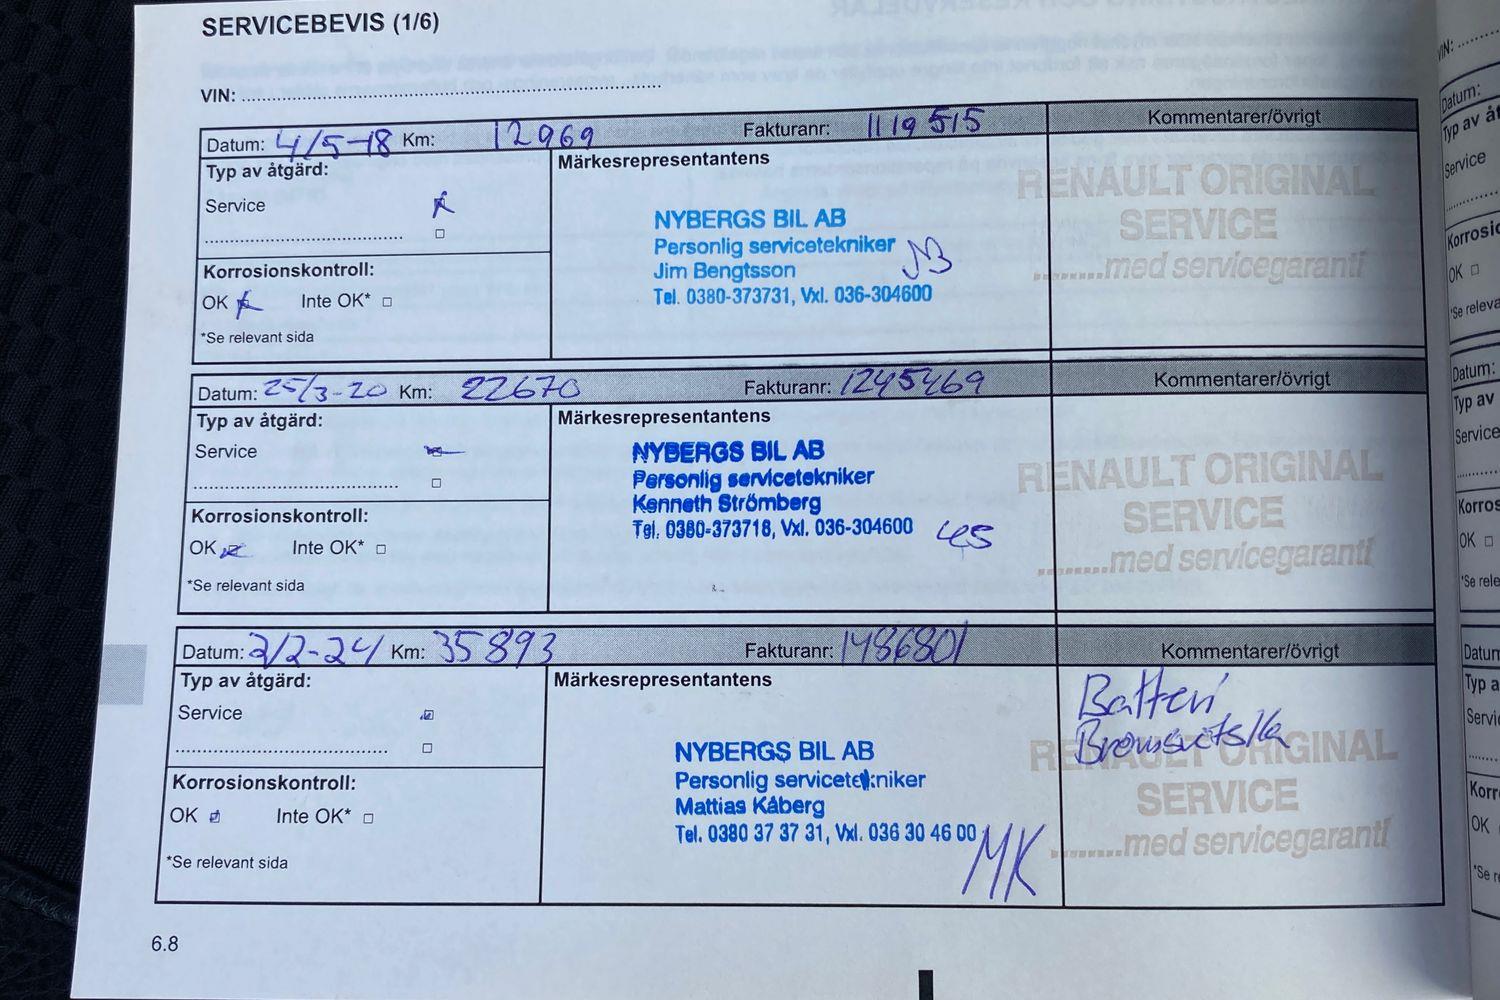 SERVICEBEVIS (1/6)
VIN:
Datum: 4/5-18 Km: 12969 Fakturanr: 1119515 Kommentarer/övrigt
Typ av åtgärd:
Märkesrepresentantens
Service
NYBERGS BIL AB
Personlig servicetekniker
Jim Bengtsson
Tel. 0380-373731, Vxl. 036-304600
Korrosionskontroll:
OK Inte OK*
*Se relevant sida
RENAULT ORIGINAL
SERVICE
........med servicegaranti
Datum: 25/3-20 Km: 22670 Fakturanr: 1245469 Kommentarer/övrigt
Typ av åtgärd:
Märkesrepresentantens
Service
NYBERGS BIL AB
Personlig servicetekniker
Kenneth Strömberg
Tel. 0380-373718, Vxl. 036-304600
Korrosionskontroll:
OK Inte OK*
*Se relevant sida
RENAULT ORIGINAL
SERVICE
........med servicegaranti
Datum: 2/2-24 Km: 35893 Fakturanr: 1486801 Kommentarer/övrigt
Typ av åtgärd:
Märkesrepresentantens
Service
NYBERGS BIL AB
Personlig servicetekniker
Mattias Kåberg
Tel. 0380 37 37 31, Vxl. 036 30 46 00
MK
Korrosionskontroll:
OK Inte OK*
*Se relevant sida
Batteri
Bromsvätska
RENAULT ORIGINAL
SERVICE
........med servicegaranti
6.8
VIN:
Datum:
Typ av
Service
OK
Datum:
Typ av
Service
OK